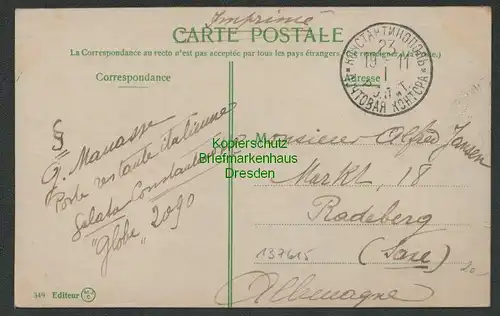 Imprimé
CARTE POSTALE
(La Correspondance au recto n'est pas acceptée par tous les pays étrangers.
Correspondance
Adresse
КОНСТАНТИНОПОЛЬ
23
19 11
1
Р.О.П.и Т.
ПОЧТОВАЯ КОНТОРА
§
J. Manasse
Poste restante italienne
Galata Constantinople
"Globe" 2090
Kopierschutz
Briefmarkenhaus
Dresden
Monsieur Alfred Jansen
Markt, 18
Radeberg
(Saxe)
Allemagne
137615
20.-
549 Editeur